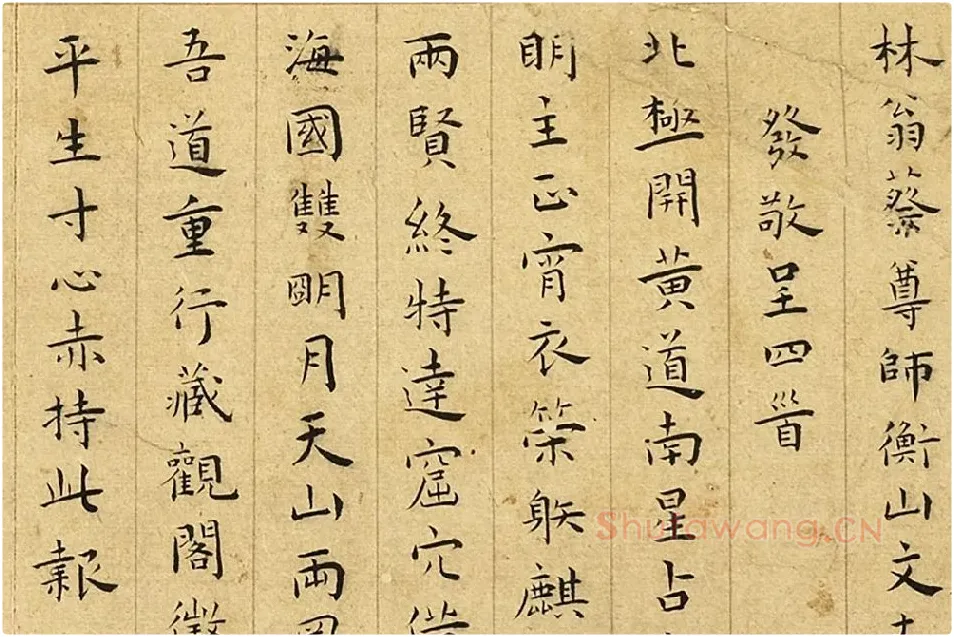 林翁蔡尊師衡山文
發敬呈四首
北極開黃道南星占
眀主正宵衣策䠶麒
兩賢終特達窟穴
海國雙朙月天山兩
吾道重行藏觀閣
平生寸心赤持此報
Shufawang.CN